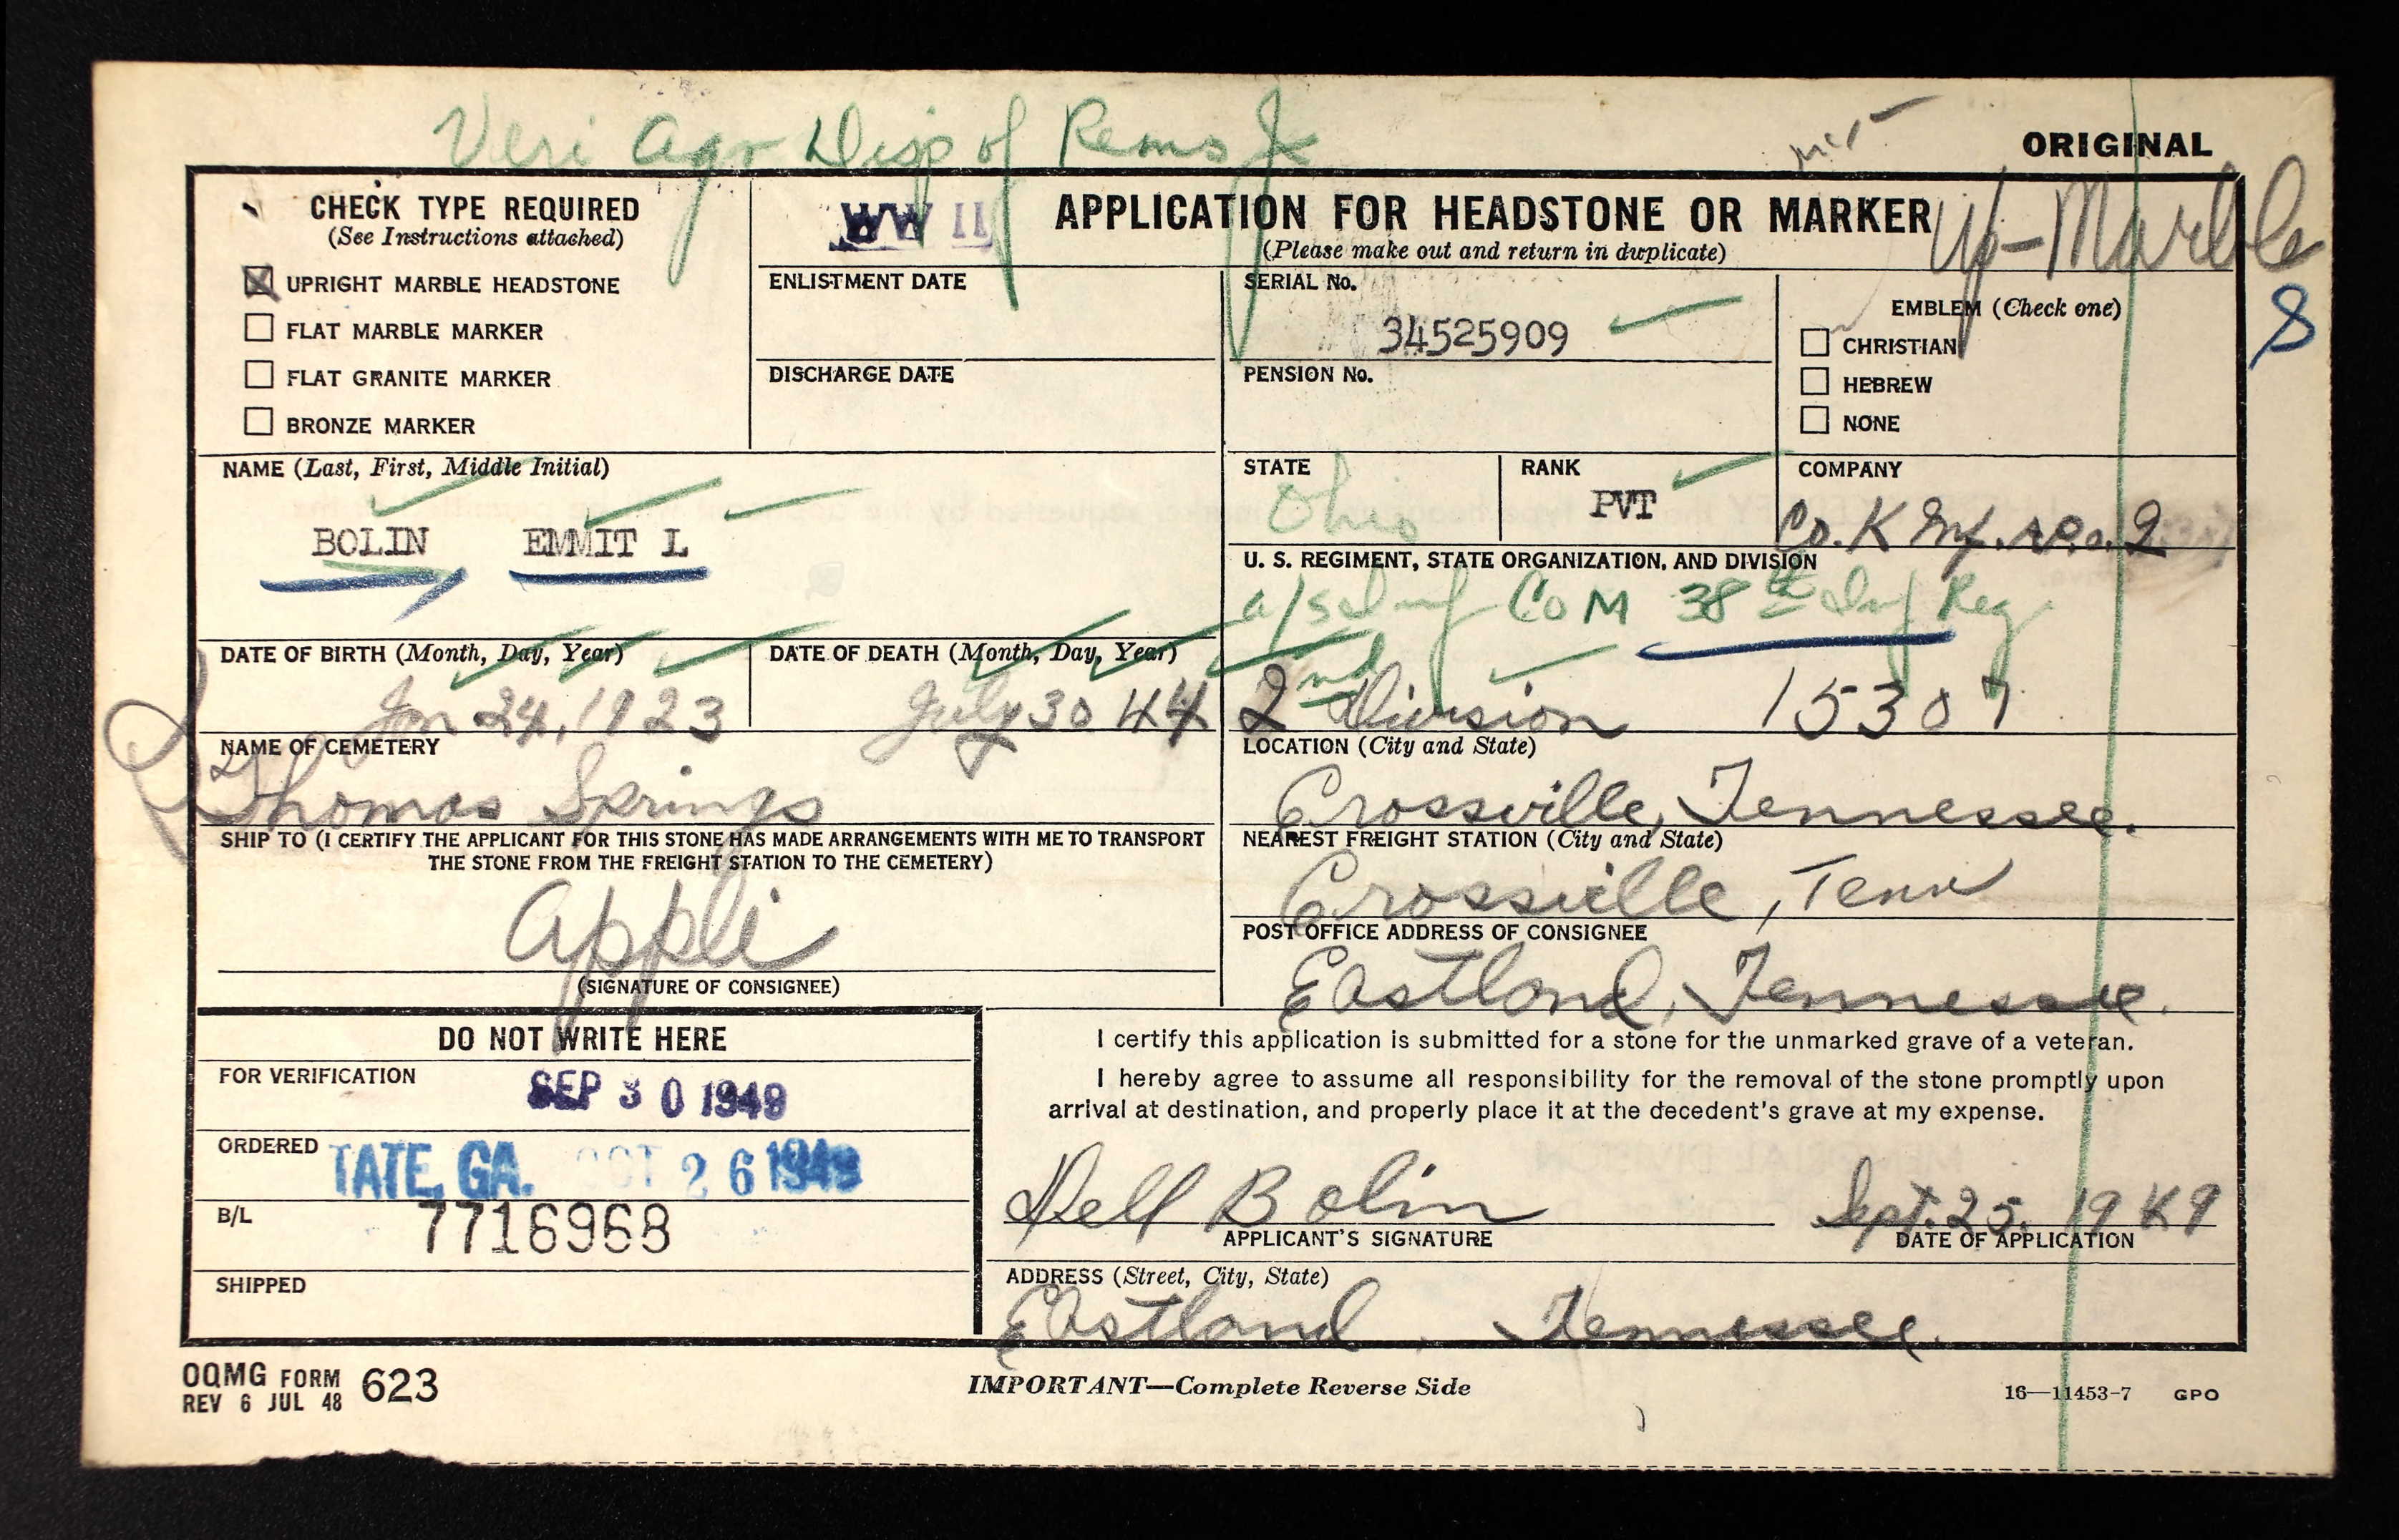 Veri Agr Disp of Rems
ORIGINAL
CHECK TYPE REQUIRED
(See Instructions attached)
UPRIGHT MARBLE HEADSTONE
FLAT MARBLE MARKER
FLAT GRANITE MARKER
BRONZE MARKER
WW II
APPLICATION FOR HEADSTONE OR MARKER
(Please make out and return in duplicate)
Up-Marble
8
ENLISTMENT DATE
DISCHARGE DATE
SERIAL No.
34525909
PENSION No.
EMBLEM (Check one)
CHRISTIAN
HEBREW
NONE
NAME (Last, First, Middle Initial)
BOLIN EMMIT L
STATE
Ohio
RANK
PVT
COMPANY
Co. K Inf. 2
U. S. REGIMENT, STATE ORGANIZATION, AND DIVISION
Co M 38th Inf Reg
2nd Division 15307
DATE OF BIRTH (Month, Day, Year)
Jan 24, 1923
DATE OF DEATH (Month, Day, Year)
July 30 44
NAME OF CEMETERY
Thomas Springs
LOCATION (City and State)
Crossville, Tennessee.
SHIP TO (I CERTIFY THE APPLICANT FOR THIS STONE HAS MADE ARRANGEMENTS WITH ME TO TRANSPORT
THE STONE FROM THE FREIGHT STATION TO THE CEMETERY)
Appli
(SIGNATURE OF CONSIGNEE)
NEAREST FREIGHT STATION (City and State)
Crossville, Tenn
POST OFFICE ADDRESS OF CONSIGNEE
Eastland, Tennessee.
DO NOT WRITE HERE
FOR VERIFICATION
SEP 30 1949
ORDERED
TATE, GA. OCT 26 1949
B/L
7716968
SHIPPED
I certify this application is submitted for a stone for the unmarked grave of a veteran.
I hereby agree to assume all responsibility for the removal of the stone promptly upon
arrival at destination, and properly place it at the decedent's grave at my expense.
Dell Bolin
APPLICANT'S SIGNATURE
Sept. 25, 1949
DATE OF APPLICATION
ADDRESS (Street, City, State)
Eastland, Tennessee.
OQMG FORM 623
REV 6 JUL 48
IMPORTANT—Complete Reverse Side
16—11453-7 GPO